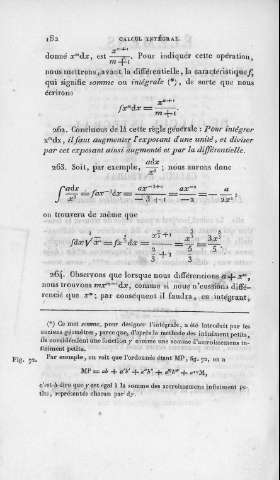 182 CALCUL INTÉGRAL.
donné xᵐdx, est x^{m+1}/(m+1). Pour indiquer cette opération,
nous mettrons, avant la différentielle, la caractéristique ∫,
qui signifie somme ou intégrale (*), de sorte que nous
écrirons
∫xᵐdx = x^{m+1}/(m+1).
262. Concluons de là cette règle générale : Pour intégrer
xᵐdx, il faut augmenter l'exposant d'une unité, et diviser
par cet exposant ainsi augmenté et par la différentielle.
263. Soit, par exemple, adx/x³ ; nous aurons donc
∫ adx/x³ = ∫ax⁻³dx = ax^{-3+1}/(-3+1) = ax⁻²/(-2) = - a/(2x²) ;
on trouvera de même que
∫dx∛x² = ∫x^{2/3}dx = x^{2/3+1}/(2/3+1) = x^{5/3}/(5/3) = 3x^{5/3}/5.
264. Observons que lorsque nous différencions a + xᵐ,
nous trouvons mxᵐ⁻¹dx, comme si nous n'eussions diffé-
rencié que xᵐ; par conséquent il faudra, en intégrant,
(*) Ce mot somme, pour désigner l'intégrale, a été introduit par les
anciens géomètres, parce que, d'après la méthode des infiniment petits,
ils considéraient une fonction y comme une somme d'accroissemens in-
finiment petits.
Fig. 72. Par exemple, on voit que l'ordonnée étant MP, fig. 72, on a
MP = ab + a'b' + a"b" + a‴b‴ + aᶦᵛM,
c'est-à-dire que y est égal à la somme des accroissemens infiniment pe-
tits, représentés chacun par dy.